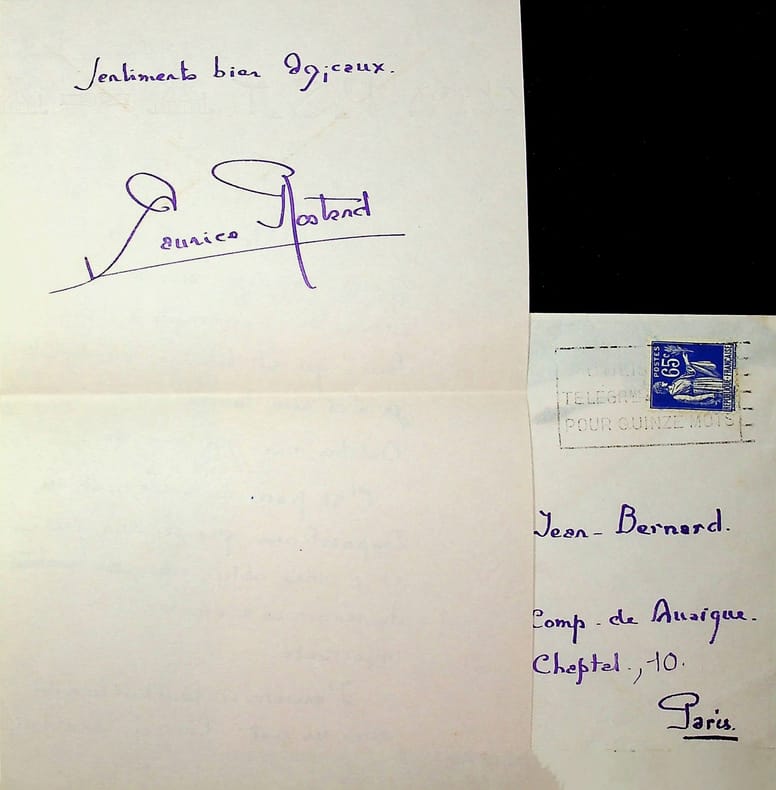 Sentiments bien
Maurice Rostand
POSTES
65c
REPUBLIQUE FRANÇAISE
POUR QUINZE MOTS
Jean-Bernard.
Comp. de Musique.
Chaptal, 10.
Paris.